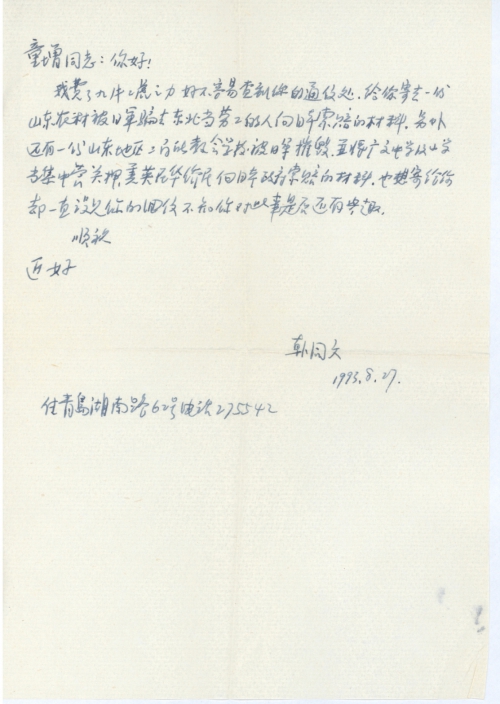 童增同志：你好！
我费了九牛二虎之力好不容易查到你的通信处，给你寄去一份
山东农村被日军骗去东北当劳工的人向日军索赔的材料，另外
还有一份山东地区二百的教会学校被日军摧毁，并将广文中学从
当集中营关押美英侨民向日本政府索赔的材料，也想寄给你
却一直没见你的回信不知你对此事是否还有兴趣。
顺祝
近好
韩同文
1993.8.27.
住青岛湖南路62号电话275542